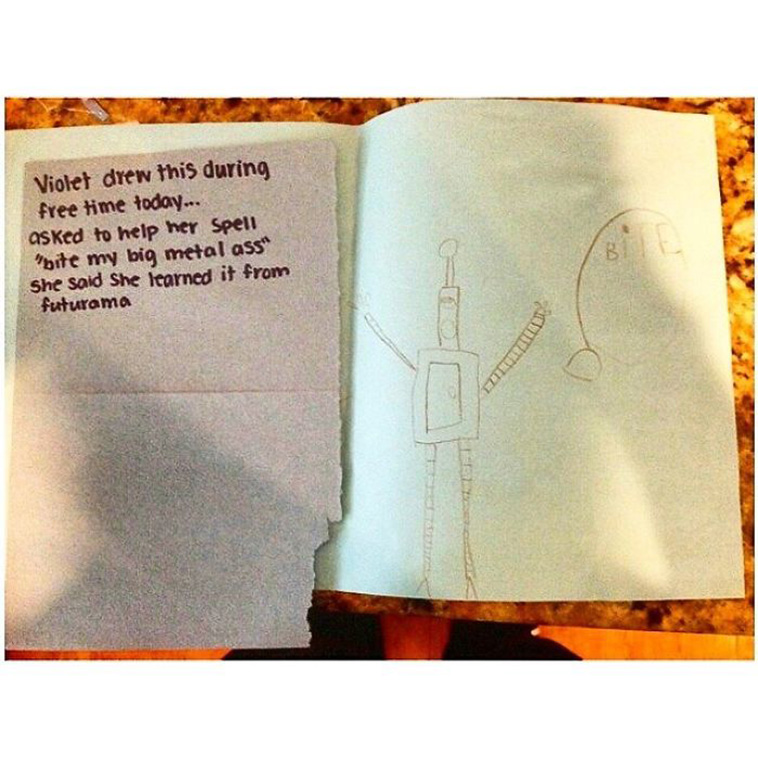 Violet drew this during
free time today...
asked to help her spell
"bite my big metal ass"
she said she learned it from
futurama
BitE